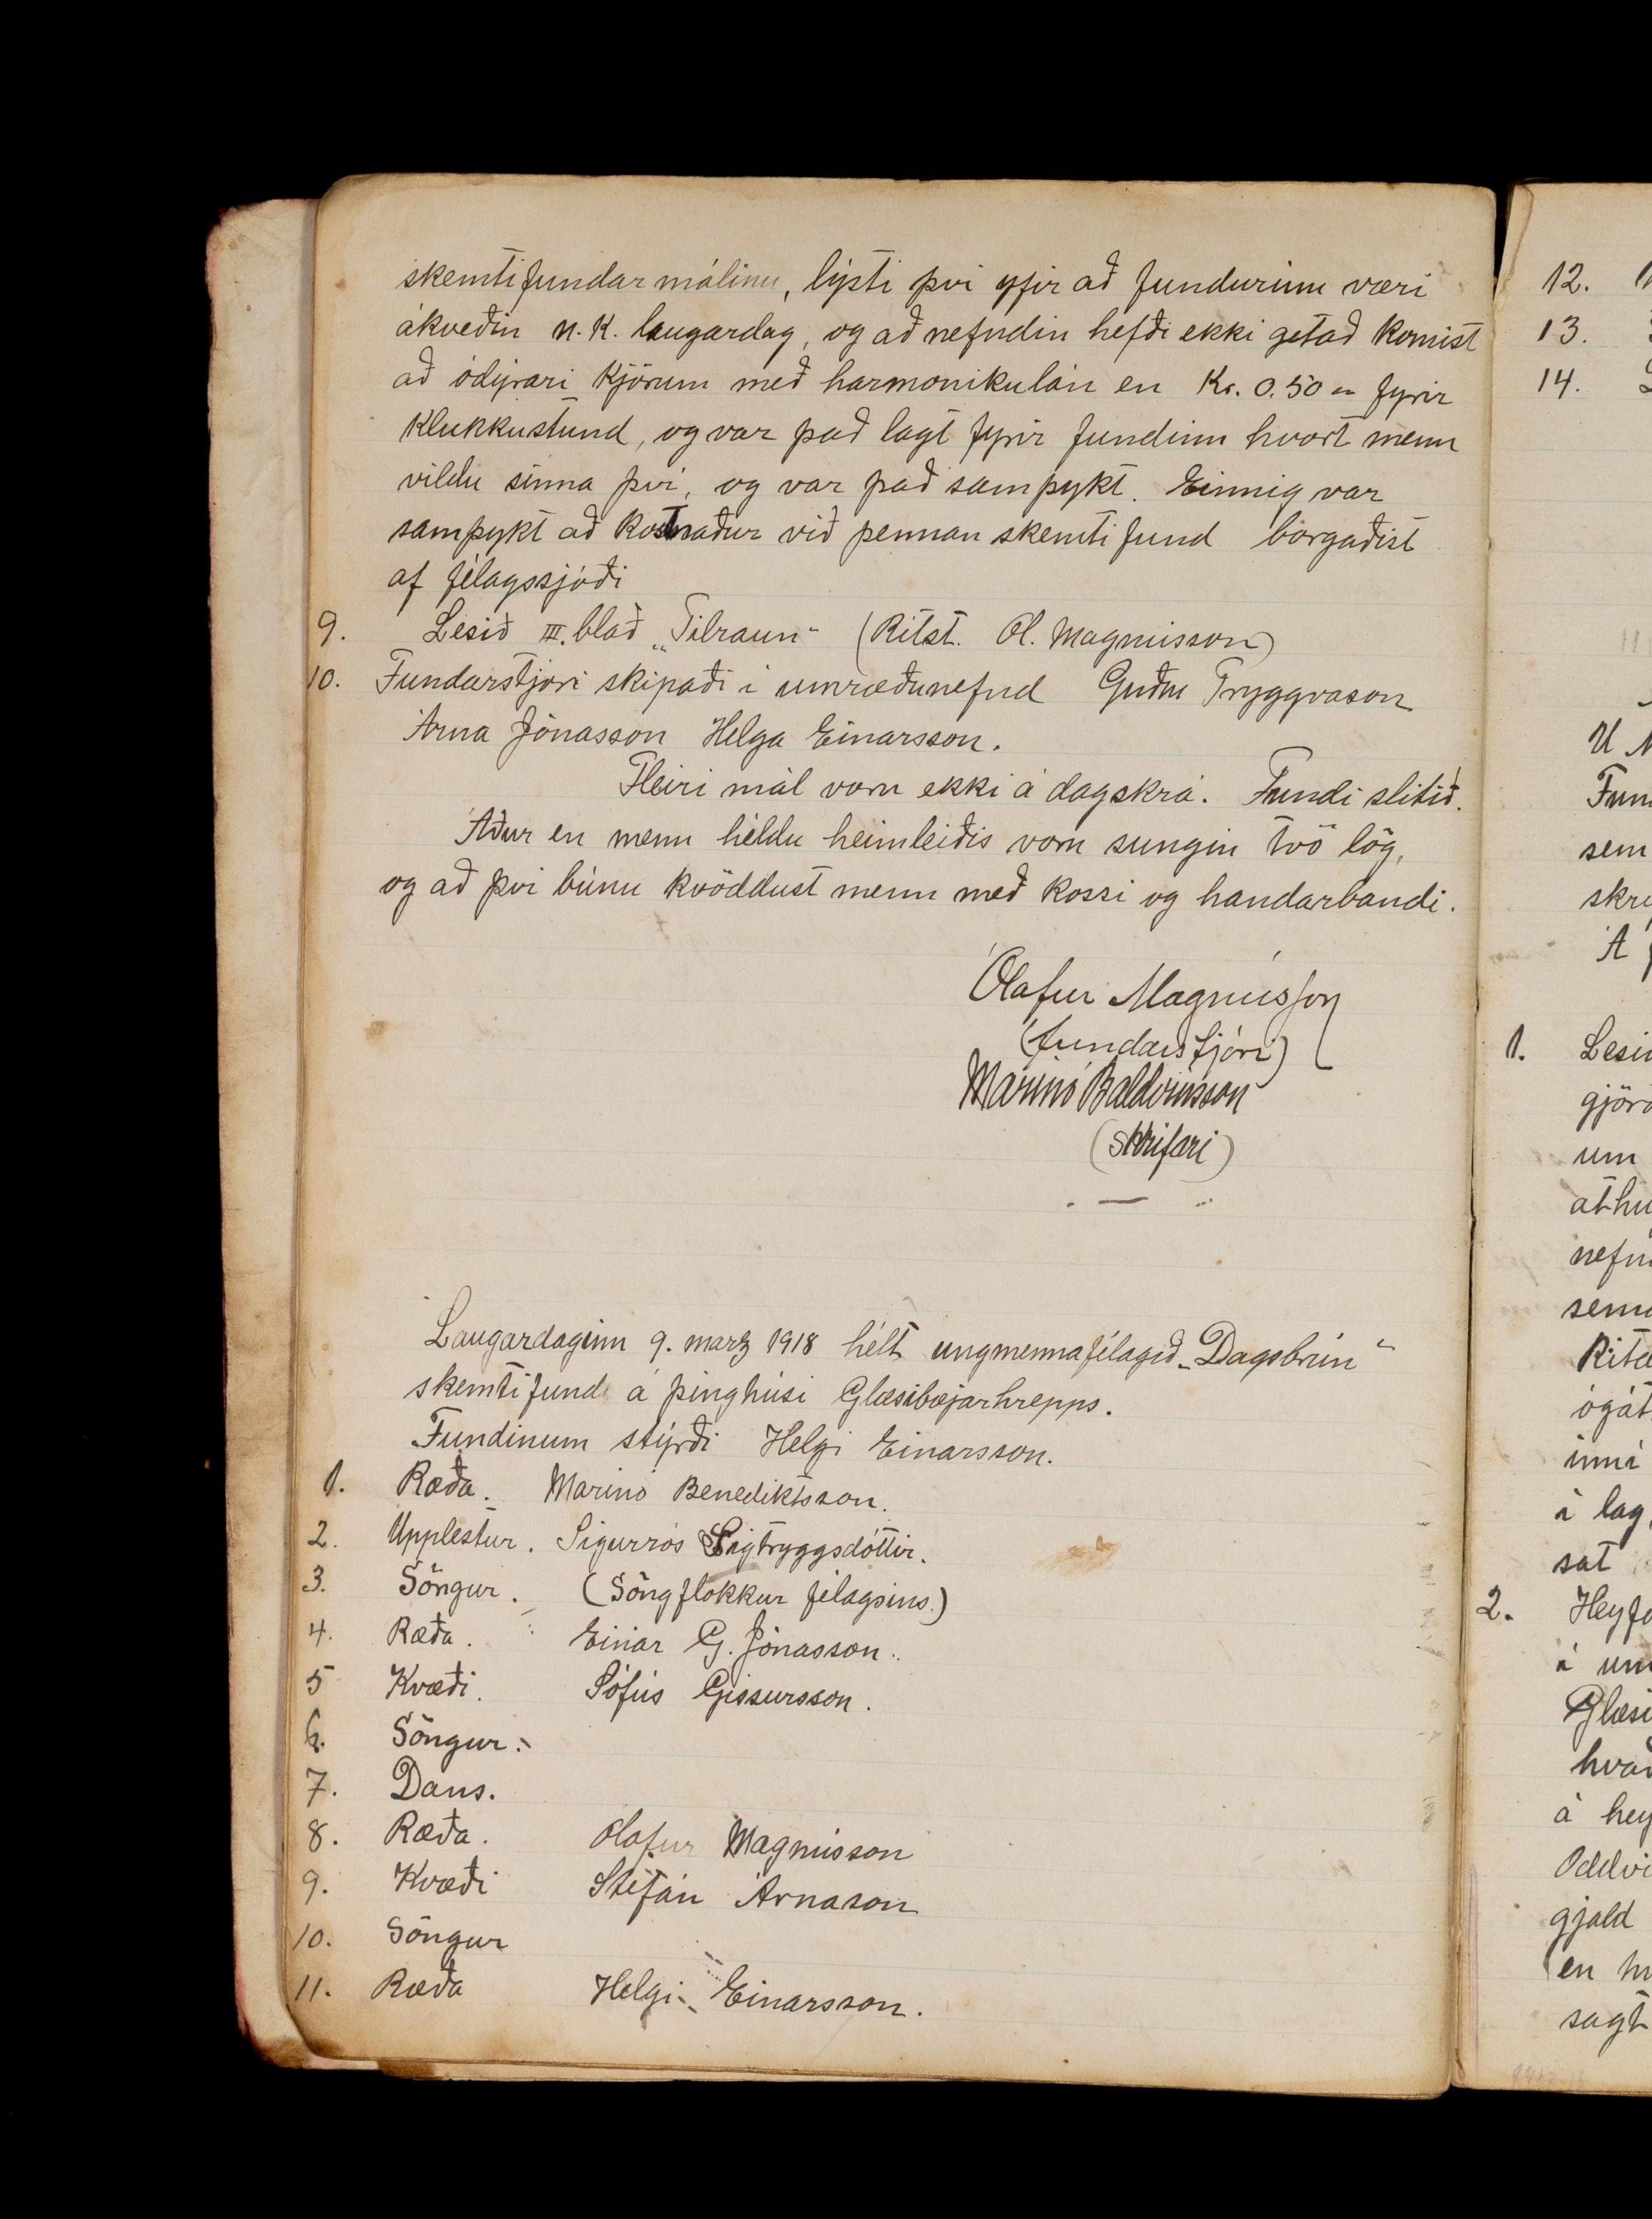 skemtifundarmálinu, lýsti því yfir að fundurinn væri
ákveðin n.k. laugardag, og að nefndin hefði ekki getað komist
að ódýrari kjörum með harmonikulán en Kr. 0.50 fyrir
klukkustund, og var það lagt fyrir fundinn hvort menn
vildu sinna því, og var það samþykt. Einnig var
samþykt að kostnaður við þennan skemtifund borgaðist
af félagssjóði
9. Lesið III. blað „Tilraun“ (Ritst. Ól. Magnússon)
10. Fundarstjóri skipaði í umræðunefnd Guðm Tryggvason
Árna Jónasson Helga Einarsson.
Fleiri mál voru ekki á dagskrá. Fundi slitið.
Áður en menn héldu heimleiðis voru sungin tvö lög,
og að því búnu kvöddust menn með kossi og handarbandi.
Ólafur Magnússon
(fundarstjóri)
Marinó Baldvinsson
(skrifari)
Laugardaginn 9. marz 1918 hélt ungmennafélagið „Dagsbrún“
skemtifund á þinghúsi Glæsibæjarhrepps.
Fundinum stýrði Helgi Einarsson.
1. Ræða. Marinó Benediktsson.
2. Upplestur. Sigurrós Sigtryggsdóttir.
3. Söngur. (Söngflokkur félagsins.)
4. Ræða. Einar G. Jónasson.
5 Kvæði. Sófús Gissursson.
6. Söngur.
7. Dans.
8. Ræða. Ólafur Magnússon
9. Kvæði Stefán Árnason
10. Söngur
11. Ræða Helgi Einarsson.
12.
13.
14.
U
sem
Á
1.
um
sat
2.
Glæsi
á hey
gjald
en
sagt